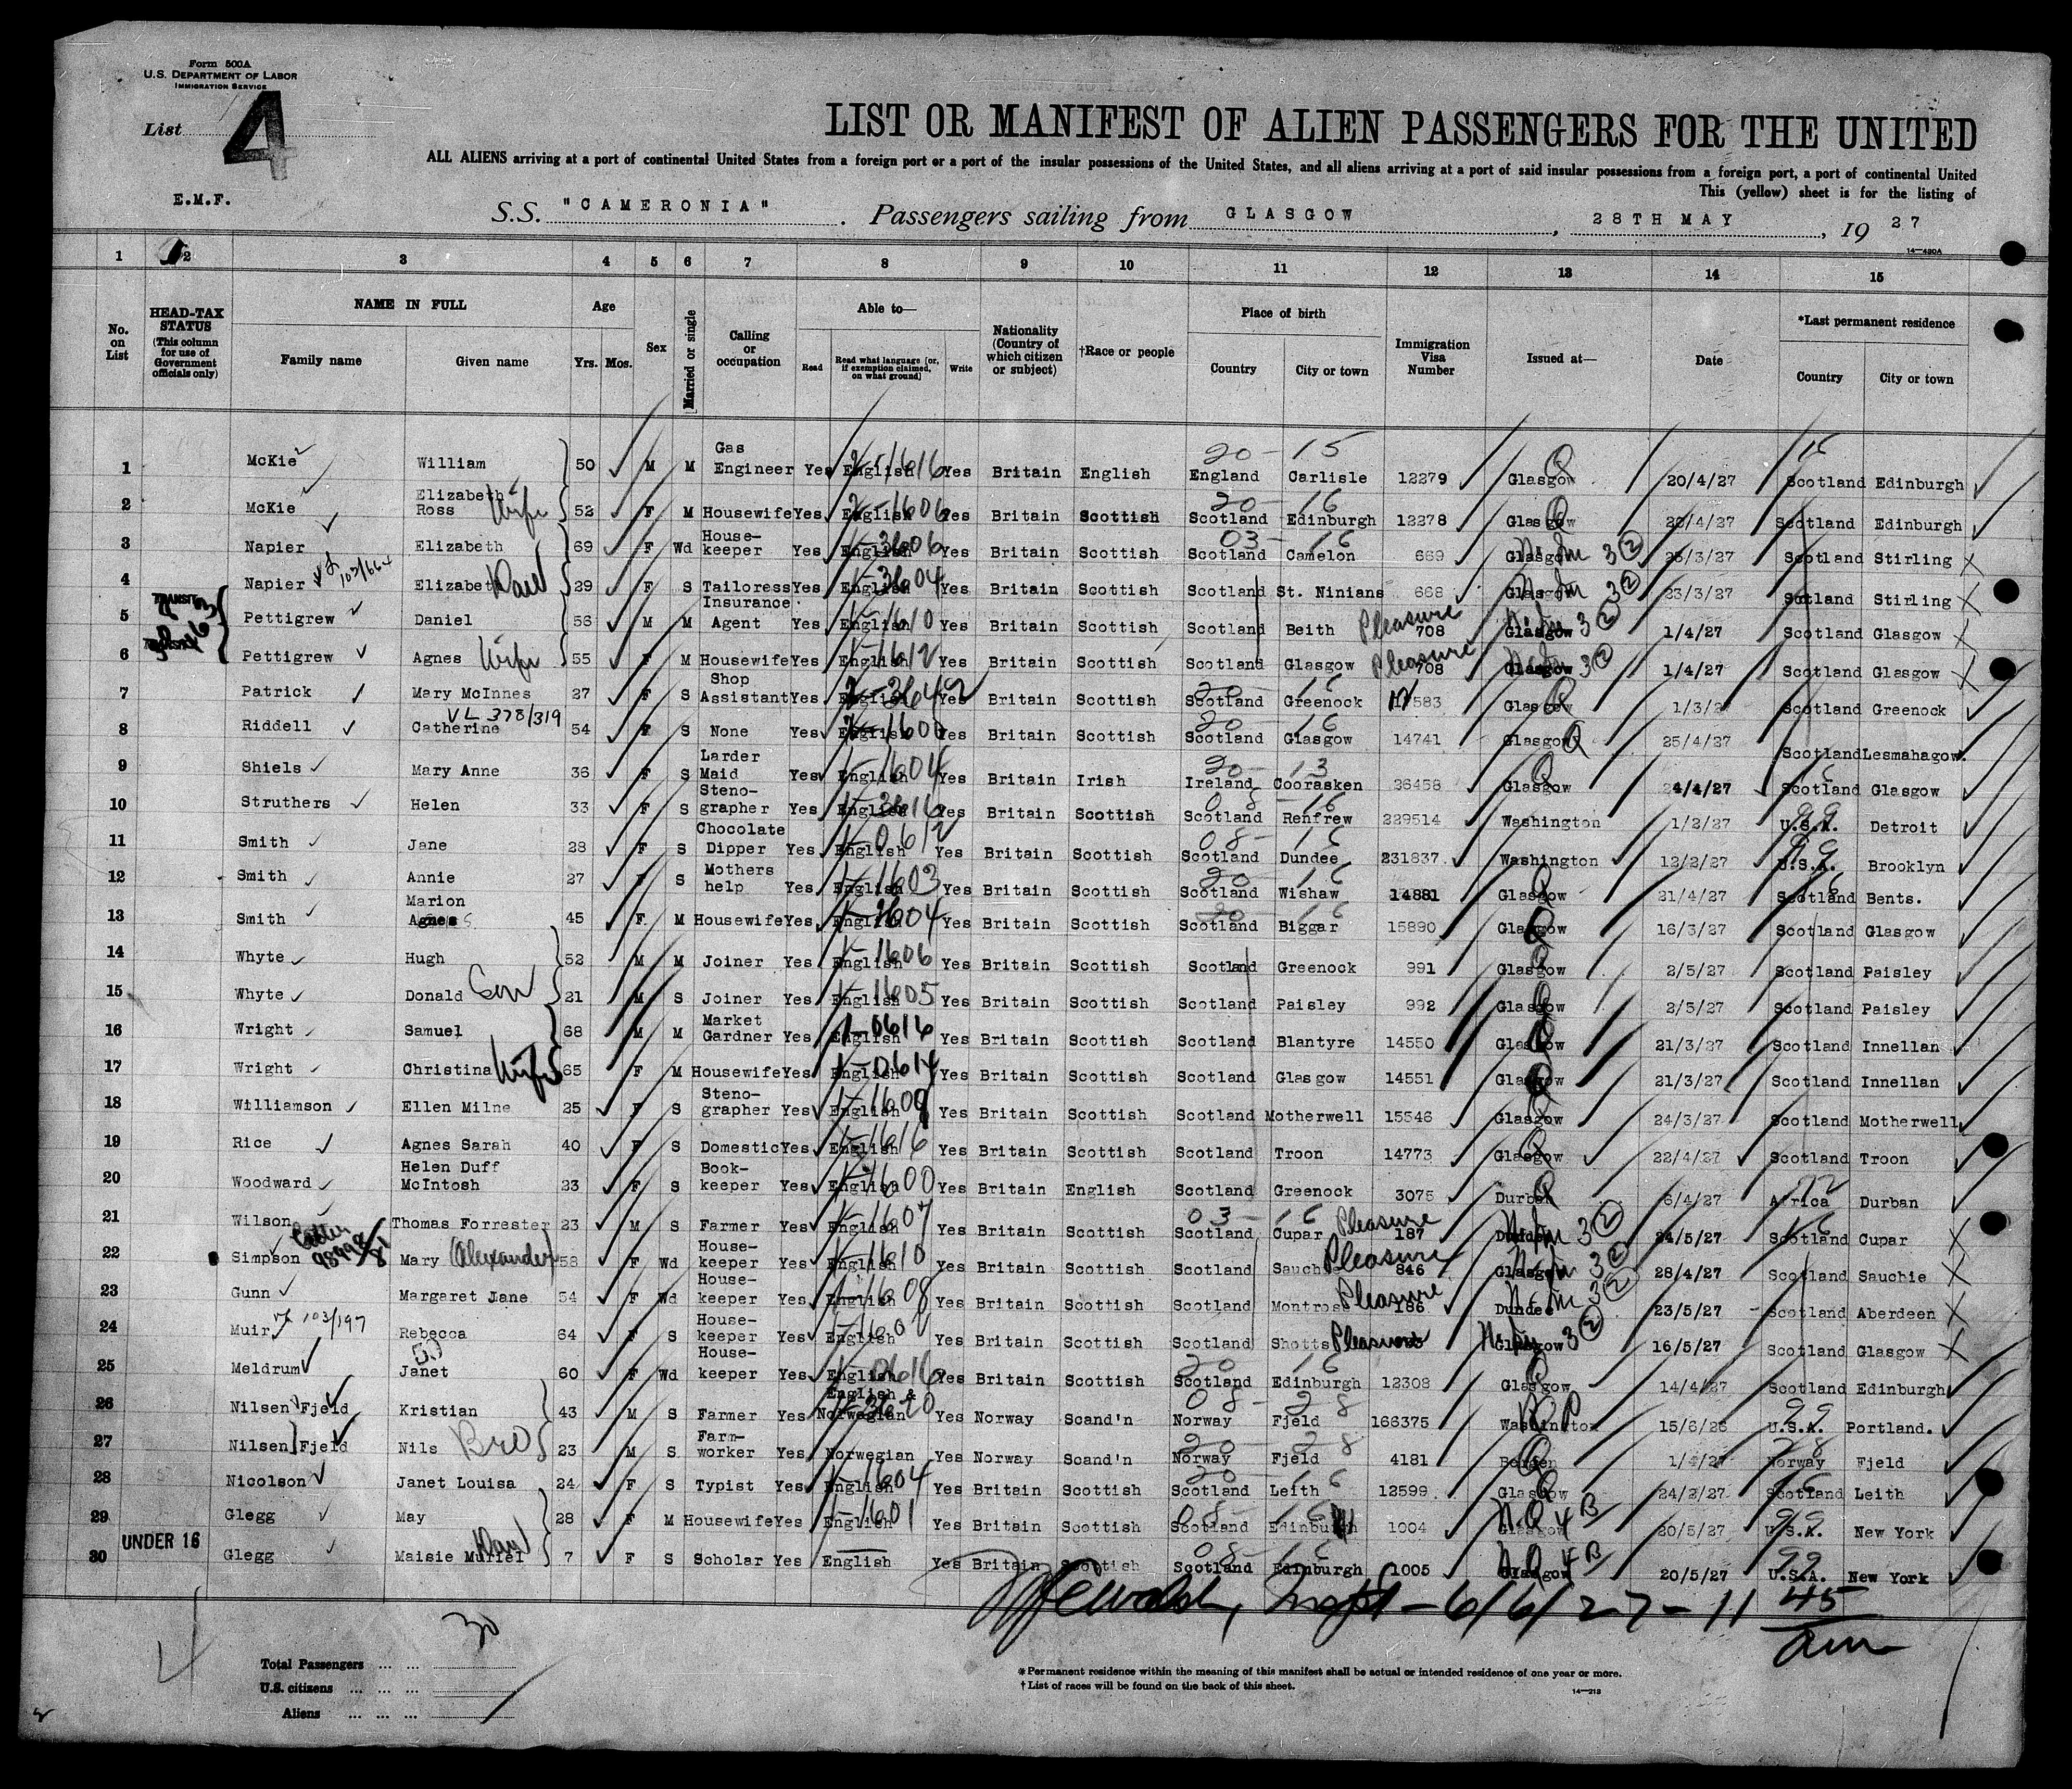 Form 500A
U.S. DEPARTMENT OF LABOR
IMMIGRATION SERVICE
List 4
LIST OR MANIFEST OF ALIEN PASSENGERS FOR THE UNITED
ALL ALIENS arriving at a port of continental United States from a foreign port or a port of the insular possessions of the United States, and all aliens arriving at a port of said insular possessions from a foreign port, a port of continental United
This (yellow) sheet is for the listing of
E.M.F.
S.S. "CAMERONIA". Passengers sailing from GLASGOW, 28TH MAY, 19 27
14—430A
1 2 3 4 5 6 7 8 9 10 11 12 13 14 15
No. on List
HEAD-TAX STATUS (This column for use of Government officials only)
NAME IN FULL Family name Given name
Age Yrs. Mos.
Sex
Married or single
Calling or occupation
Able to— Read Read what language [or, if exemption claimed, on what ground] Write
Nationality (Country of which citizen or subject)
†Race or people
Place of birth Country City or town
Immigration Visa Number
Issued at—
Date
*Last permanent residence Country City or town
1 McKie William 50 M M Gas Engineer Yes English Yes Britain English England Carlisle 12279 Glasgow 20/4/27 Scotland Edinburgh
2 McKie Elizabeth Ross Wife 52 F M Housewife Yes English Yes Britain Scottish Scotland Edinburgh 12278 Glasgow 20/4/27 Scotland Edinburgh
3 Napier Elizabeth 69 F Wd House-keeper Yes English Yes Britain Scottish Scotland Camelon 669 Glasgow 23/3/27 Scotland Stirling
4 Napier 103/664 Elizabeth Dau 29 F S Tailoress Yes English Yes Britain Scottish Scotland St. Ninians 668 Glasgow 23/3/27 Scotland Stirling
TRANSIT
5 Pettigrew Daniel 56 M M Insurance Agent Yes English Yes Britain Scottish Scotland Beith Pleasure 708 Glasgow 1/4/27 Scotland Glasgow
6 Pettigrew Agnes Wife 55 F M Housewife Yes English Yes Britain Scottish Scotland Glasgow Pleasure 708 Glasgow 1/4/27 Scotland Glasgow
7 Patrick Mary McInnes 27 F S Shop Assistant Yes English Yes Britain Scottish Scotland Greenock 583 Glasgow 1/3/27 Scotland Greenock
8 Riddell VL 378/319 Catherine 54 F S None Yes English Yes Britain Scottish Scotland Glasgow 14741 Glasgow 25/4/27 Scotland Lesmahagow.
9 Shiels Mary Anne 36 F S Larder Maid Yes English Yes Britain Irish Ireland Coorasken 26458 Glasgow 4/4/27 Scotland Glasgow
10 Struthers Helen 33 F S Steno-grapher Yes English Yes Britain Scottish Scotland Renfrew 229514 Washington 1/2/27 U.S.A. Detroit
11 Smith Jane 28 F S Chocolate Dipper Yes English Yes Britain Scottish Scotland Dundee 231837 Washington 12/2/27 U.S.A. Brooklyn
12 Smith Annie 27 F S Mothers help Yes English Yes Britain Scottish Scotland Wishaw 14881 Glasgow 21/4/27 Scotland Bents.
13 Smith Marion Agnes 45 F M Housewife Yes English Yes Britain Scottish Scotland Biggar 15890 Glasgow 16/3/27 Scotland Glasgow
14 Whyte Hugh 52 M M Joiner Yes English Yes Britain Scottish Scotland Greenock 991 Glasgow 2/5/27 Scotland Paisley
15 Whyte Donald Son 21 M S Joiner Yes English Yes Britain Scottish Scotland Paisley 992 Glasgow 2/5/27 Scotland Paisley
16 Wright Samuel 68 M M Market Gardner Yes English Yes Britain Scottish Scotland Blantyre 14550 Glasgow 21/3/27 Scotland Innellan
17 Wright Christina Wife 65 F M Housewife Yes English Yes Britain Scottish Scotland Glasgow 14551 Glasgow 21/3/27 Scotland Innellan
18 Williamson Ellen Milne 25 F S Steno-grapher Yes English Yes Britain Scottish Scotland Motherwell 15546 Glasgow 24/3/27 Scotland Motherwell
19 Rice Agnes Sarah 40 F S Domestic Yes English Yes Britain Scottish Scotland Troon 14773 Glasgow 22/4/27 Scotland Troon
20 Woodward Helen Duff McIntosh 23 F S Book-keeper Yes English Yes Britain English Scotland Greenock 3075 Durban 6/4/27 Africa Durban
21 Wilson Thomas Forrester 23 M S Farmer Yes English Yes Britain Scottish Scotland Cupar Pleasure 187 Dundee 24/5/27 Scotland Cupar
22 Simpson Mary (Alexander) 58 F Wd House-keeper Yes English Yes Britain Scottish Scotland Sauch Pleasure 846 Glasgow 28/4/27 Scotland Sauchie
23 Gunn Margaret Jane 54 F Wd House-keeper Yes English Yes Britain Scottish Scotland Montros Pleasure 186 Dundee 23/5/27 Scotland Aberdeen
24 Muir 103/197 Rebecca 64 F S House-keeper Yes English Yes Britain Scottish Scotland Shotts Pleasure Glasgow 16/5/27 Scotland Glasgow
25 Meldrum Janet 60 F Wd House-keeper Yes English Yes Britain Scottish Scotland Edinburgh 12308 Glasgow 14/4/27 Scotland Edinburgh
26 Nilsen Fjeld Kristian 43 M S Farmer Yes English & Norwegian Yes Norway Scand'n Norway Fjeld 166375 Washington 15/6/26 U.S.A. Portland.
27 Nilsen Fjeld Nils Bro 23 M S Farm-worker Yes Norwegian Yes Norway Scand'n Norway Fjeld 4181 Bergen 1/4/27 Norway Fjeld
28 Nicolson Janet Louisa 24 F S Typist Yes English Yes Britain Scottish Scotland Leith 12599 Glasgow 24/2/27 Scotland Leith
29 Glegg May 28 F M Housewife Yes English Yes Britain Scottish Scotland Edinburgh 1004 Glasgow 20/5/27 U.S.A. New York
30 UNDER 16 Glegg Maisie Muriel Dau 7 F S Scholar Yes English Yes Britain Scottish Scotland Edinburgh 1005 Glasgow 20/5/27 U.S.A. New York
6/6/27 - 11 45 am
30
Total Passengers ... ...
U.S. citizens ... ... ...
Aliens ... ... ...
*Permanent residence within the meaning of this manifest shall be actual or intended residence of one year or more.
†List of races will be found on the back of this sheet.
14—213